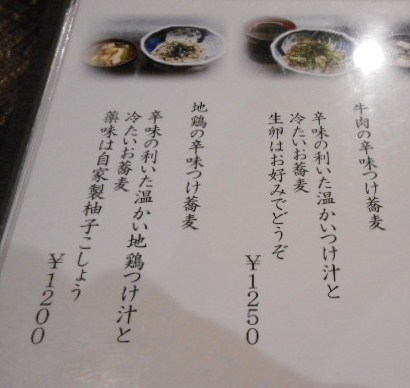 牛肉の辛味つけ蕎麦
辛味の利いた温かいつけ汁と
冷たいお蕎麦
生卵はお好みでどうぞ
￥1250
地鶏の辛味つけ蕎麦
辛味の利いた温かい地鶏つけ汁と
冷たいお蕎麦
薬味は自家製柚子こしょう
￥1200